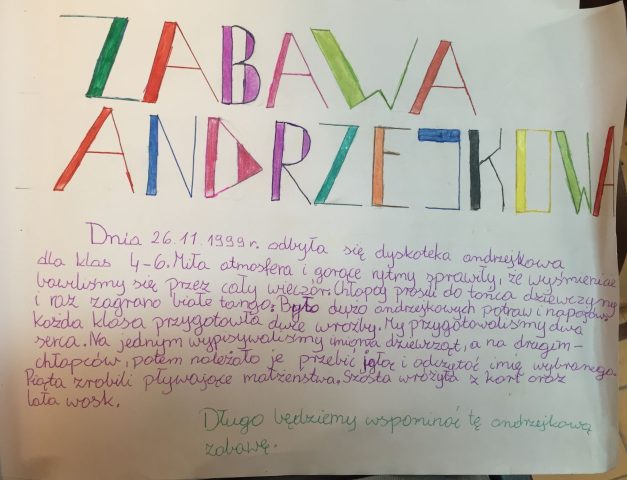 ZABAWA
ANDRZEJKOWA
Dnia 26.11.1999r. odbyła się dyskoteka andrzejkowa
dla klas 4-6. Miła atmosfera i gorące rytmy sprawiły, że wyśmienicie
bawiliśmy się przez cały wieczór. Chłopcy prosili do tańca dziewczyny
i raz zagrano białe tango. Było dużo andrzejkowych potraw i napojów.
Każda klasa przygotowła duże wróżby. My przygotowaliśmy dwa
serca. Na jednym wypisywaliśmy imiona dziewcząt, a na drugim-
chłopców, potem należało je przebić igłą i odczytać imię wybranego.
Piąta zrobili pływające małżeństwa. Szósta wróżyła z kart oraz
lała wosk.
Długo będziemy wspominać tę andrzejkową
zabawę.